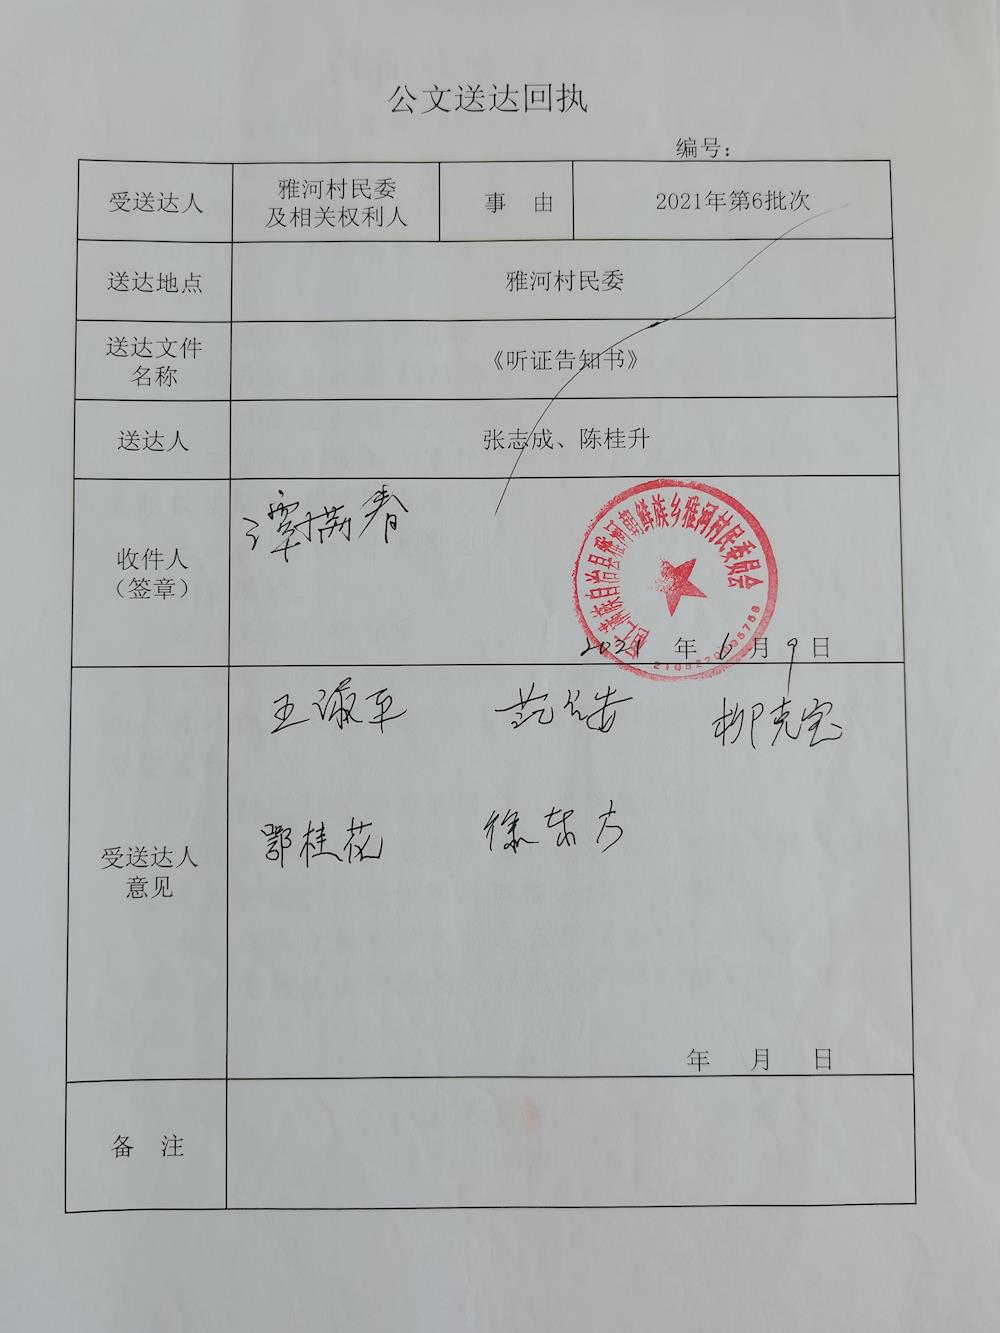 公文送达回执
编号：
受送达人
雅河村民委
及相关权利人
事 由
2021年第6批次
送达地点
雅河村民委
送达文件
名称
《听证告知书》
送达人
张志成、陈桂升
收件人
（签章）
谭满春
自治县雅河朝鲜族乡雅河村民委员会
2021 年 6 月 9 日
受送达人
意见
王淑平
柳克宝
鄂桂花
徐东方
年 月 日
备 注